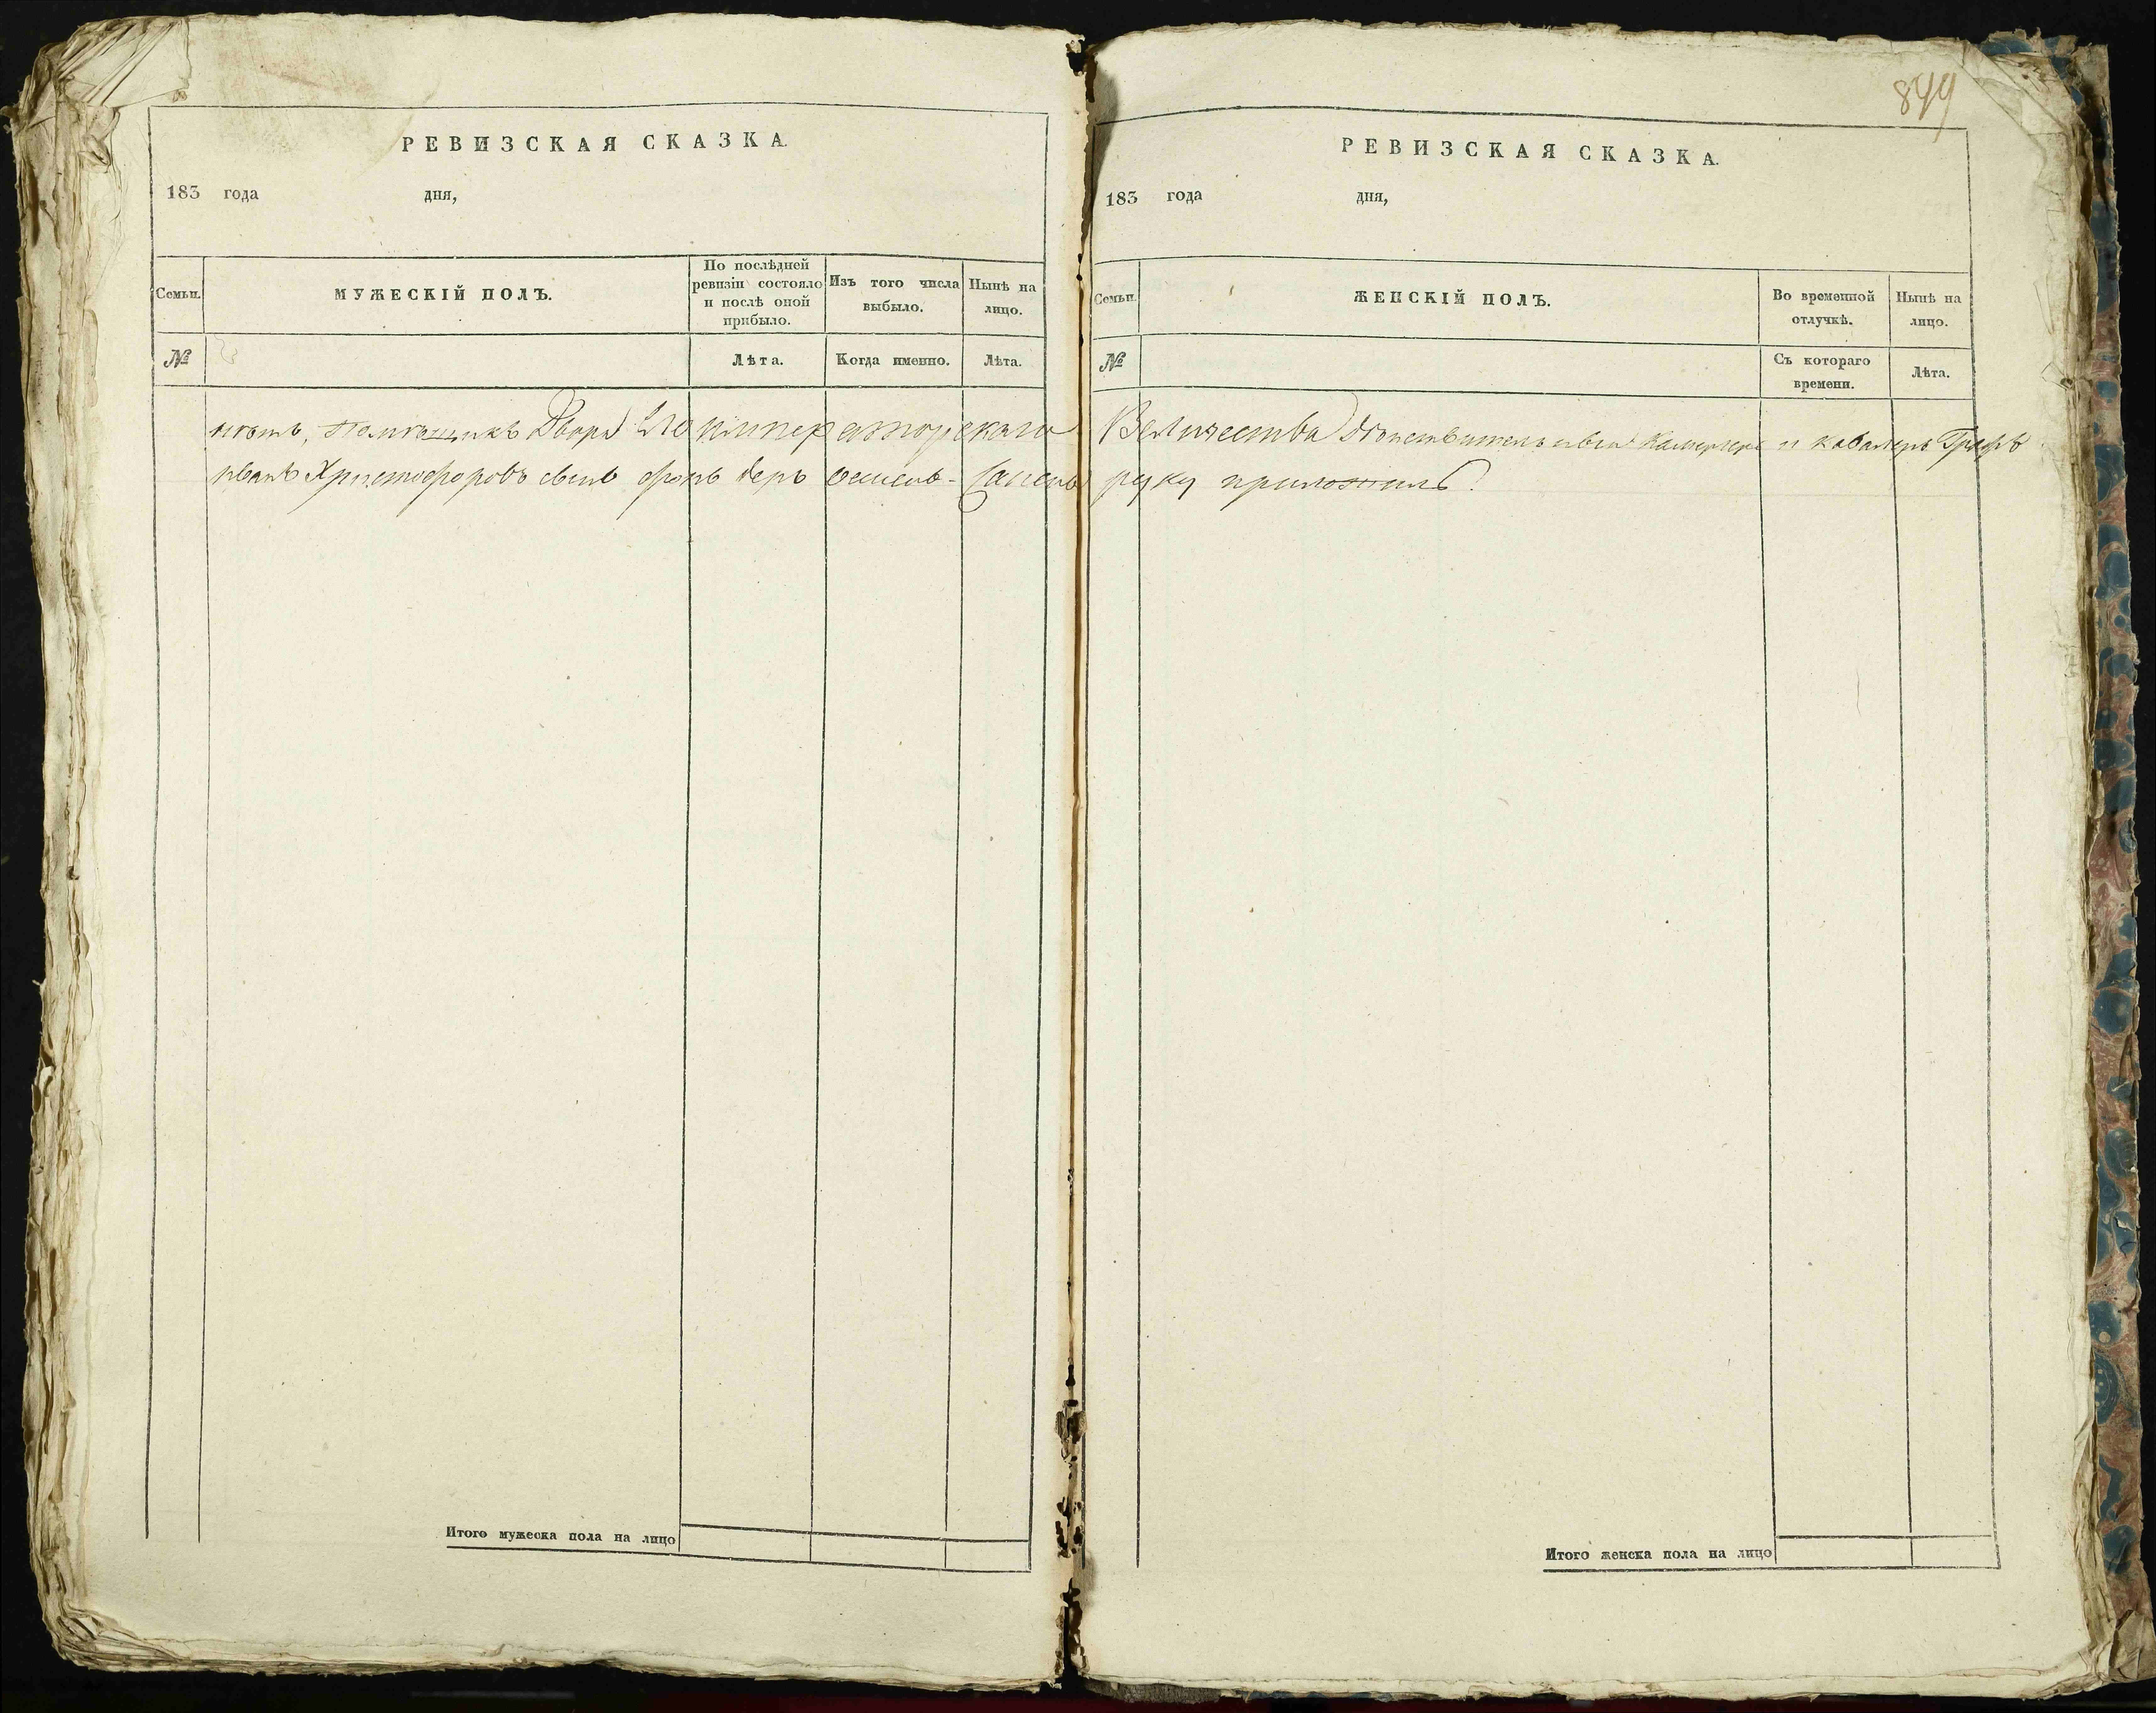 849
РЕВИЗСКАЯ СКАЗКА.
183 года дня,
Семьи.
МУЖЕСКІЙ ПОЛЪ.
По послѣдней
ревизіи состояло
и послѣ оной
прибыло.
Изъ того числа
выбыло.
Нынѣ на
лицо.
№
Лѣта.
Когда именно.
Лѣта.
Помѣщикъ Двора Его императорскаго
иванъ Христофоровъ сынъ фонъ деръ остенъ-Сакенъ
Итого мужеска пола на лицо
РЕВИЗСКАЯ СКАЗКА.
183 года дня,
Семьи.
ЖЕНСКІЙ ПОЛЪ.
Во временной
отлучкѣ.
Нынѣ на
лицо.
№
Съ котораго
времени.
Лѣта.
Величества Дѣйствительный Камергеръ и кавалеръ Графъ
руку приложилъ.
Итого женска пола на лицо